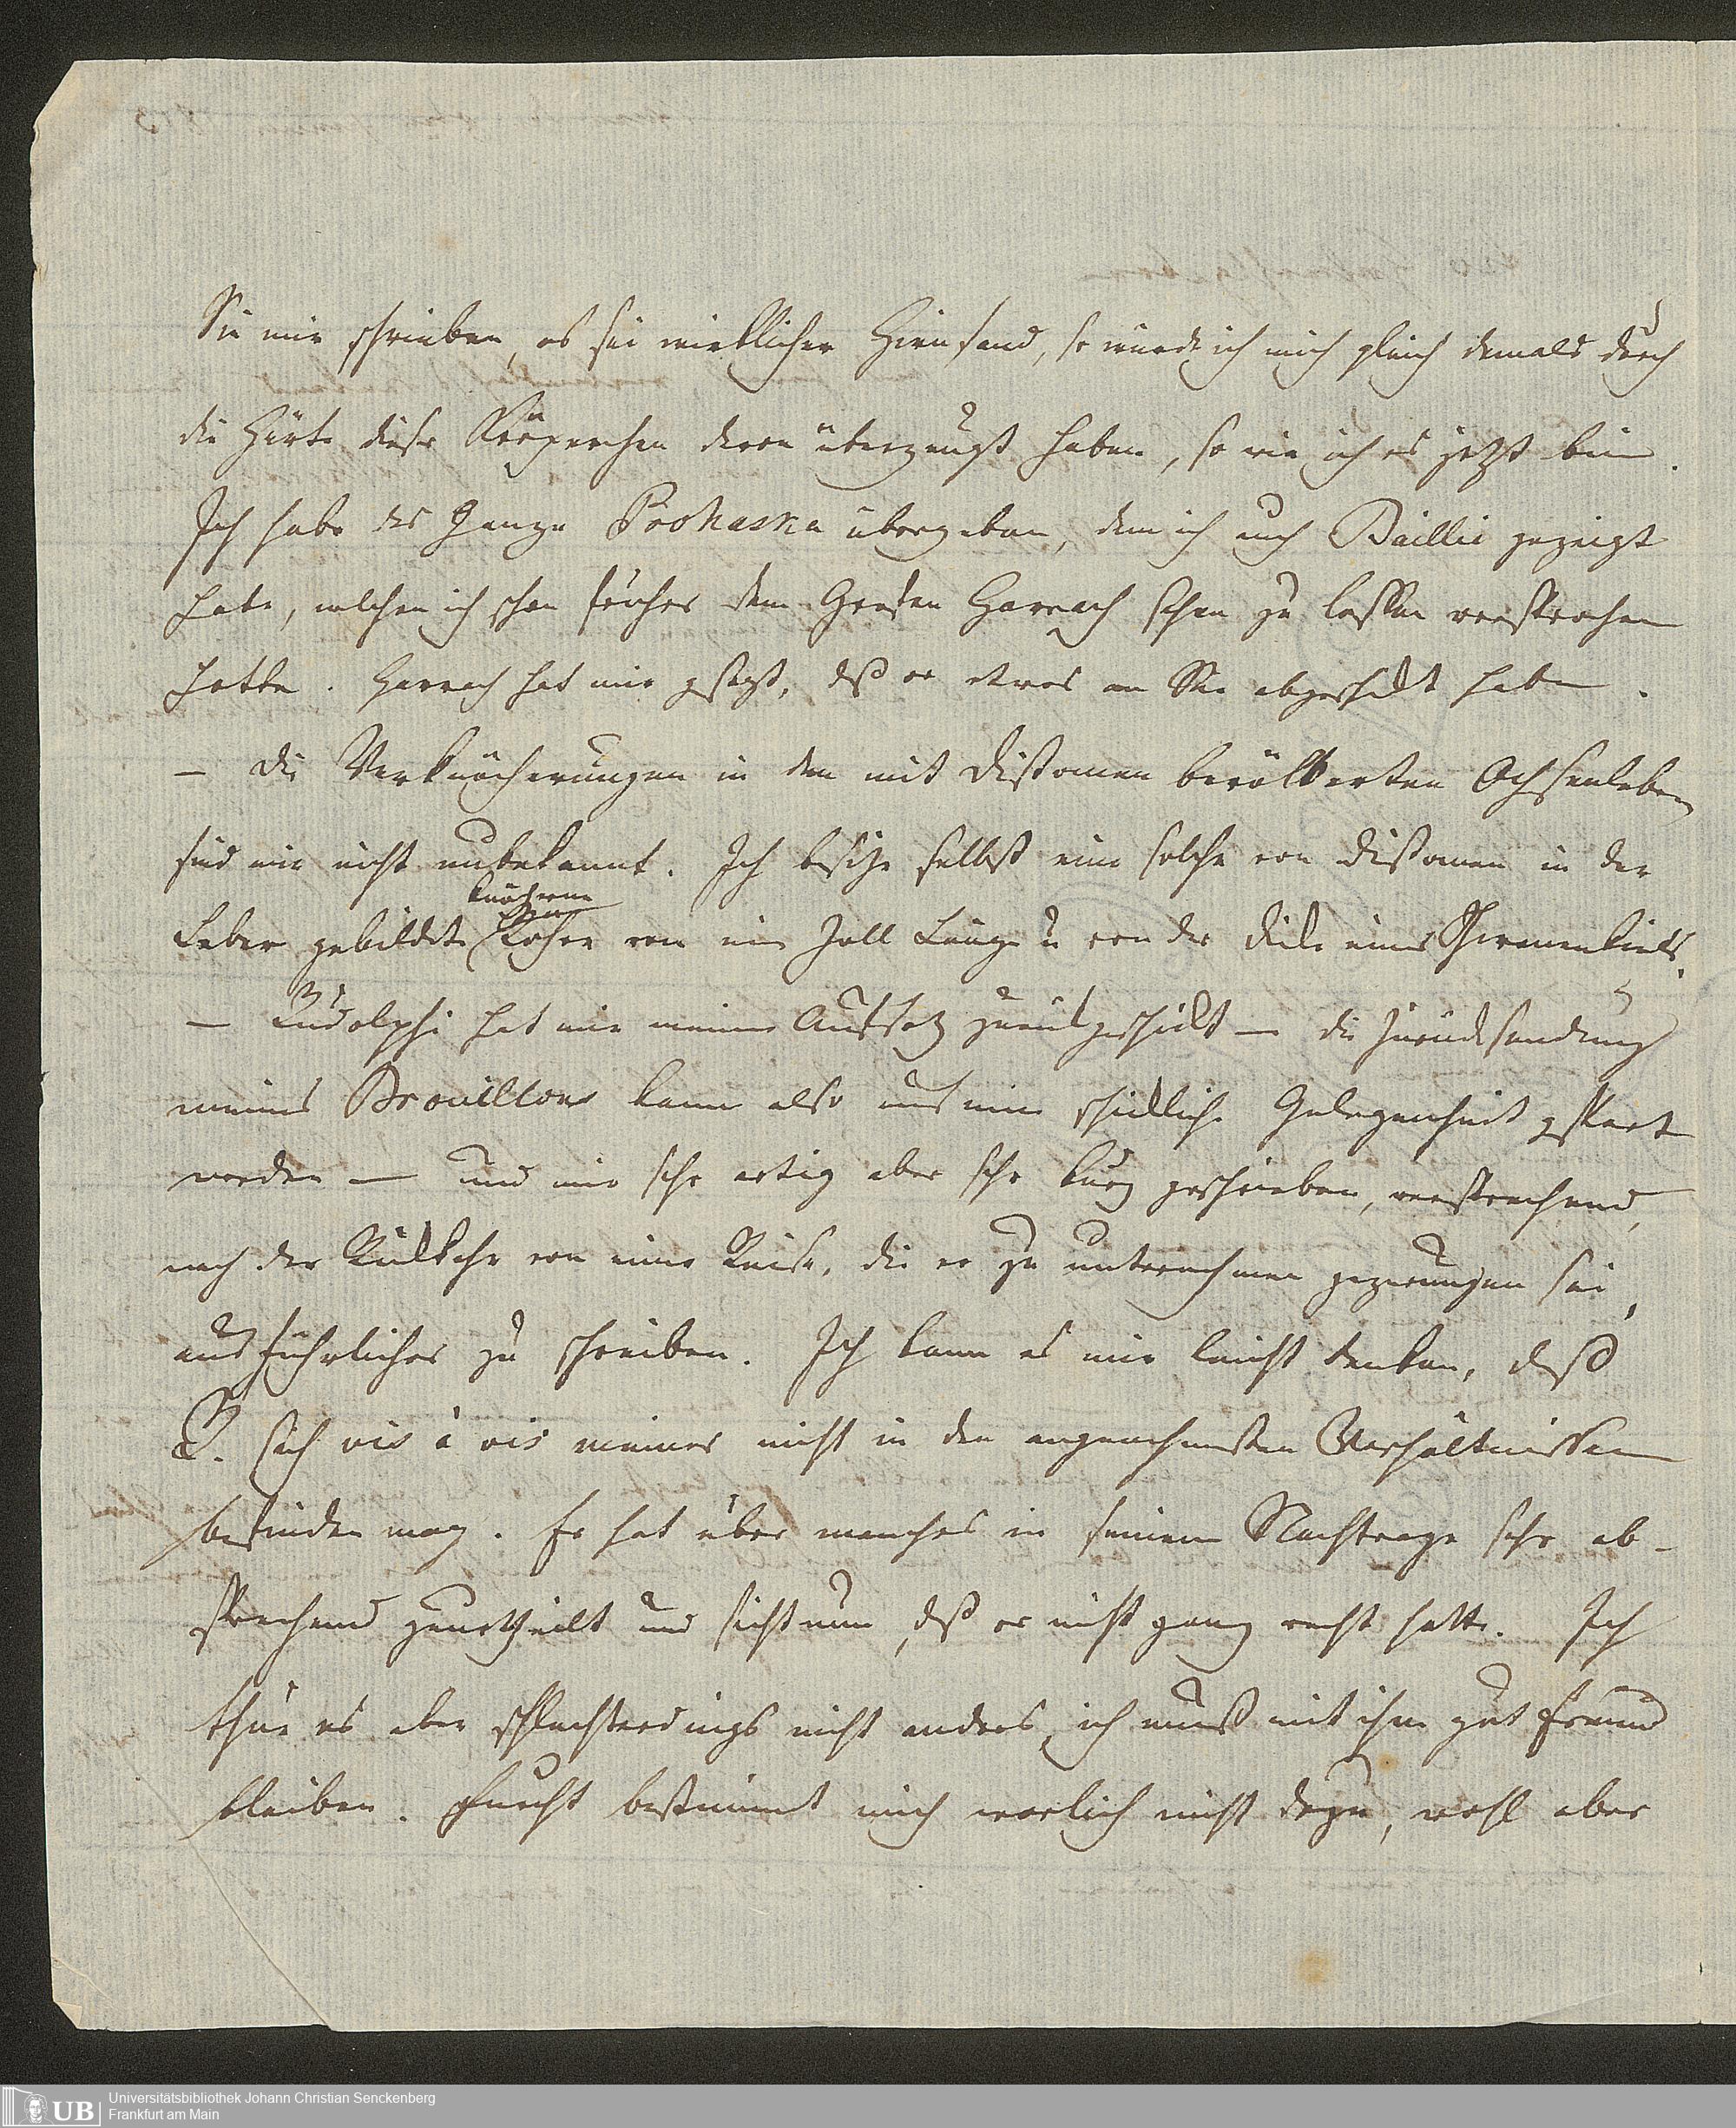 Sie mir schrieben, es sei wirklicher Hirnsand, so würde ich mich gleich damals durch
die Härte dieser Körperchen davon überzeugt haben, so wie ich es jetzt bin.
Ich habe das Ganze Prohaska übergeben, dem ich auch Baillie gezeigt
habe, welchen ich schon früher dem Grafen Harrach sehen zu lassen versprochen
hatte. Harrach hat mir gesagt, daß er etwas an Sie abgeschikt habe.
— Die Verknöcherungen in den mit Distomen bevölkerten Ochsenlebern
sind mir nicht unbekannt. Ich besitze selbst eine solche von Distomen in der
knöcherne
Leber gebildete Röhre von ein Zoll Länge u von der Dicke eines Schwanenkiels.
— Rudolphi hat mir meinen Aufsatz zurückgeschickt — die Zurücksendung
meines Brouillons kann also auf eine schickliche Gelegenheit gespart
werden — und mir sehr artig aber sehr kurz geschrieben, versprechend,
nach der Rückkehr von einer Reise, die er zu unternehmen gezwungen sei,
ausführlicher zu schreiben. Ich kann es mir leicht denken, daß
R. sich vis à vis meiner nicht in den angenehmsten Verhältnissen
befinden mag. Er hat über manches in seinem Nachtrage sehr ab-
sprechend geurtheilt und sieht nun, daß er nicht ganz recht hatte. Ich
thue es aber schlechterdings nicht anders, ich muß mit ihm gut Freund
bleiben. Furcht bestimmt mich warlich nicht dazu, wohl aber
UB Universitätsbibliothek Johann Christian Senckenberg
Frankfurt am Main